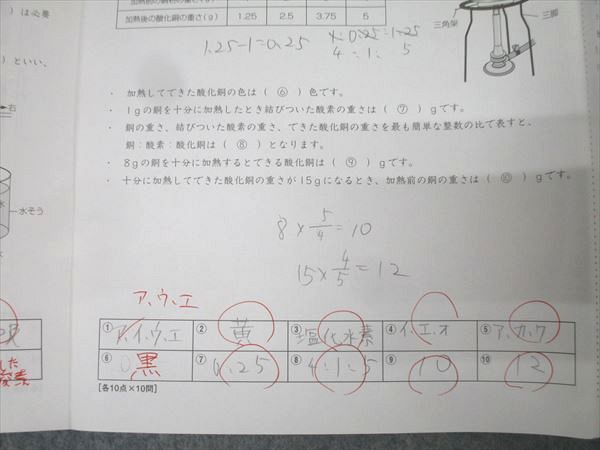 ）は必要
加熱後の酸化銅の重さ(g) 1.25 2.5 3.75 5
三角架
三脚
1.25-1=0.25
1:0.25:1.25
4:1:5
）といい、
・ 加熱してできた酸化銅の色は（ ⑥ ）色です。
・ 1gの銅を十分に加熱したとき結びついた酸素の重さは（ ⑦ ）gです。
・ 銅の重さ、結びついた酸素の重さ、できた酸化銅の重さを最も簡単な整数の比で表すと、
銅：酸素：酸化銅は（ ⑧ ）となります。
・ 8gの銅を十分に加熱するとできる酸化銅は（ ⑨ ）gです。
・ 十分に加熱してできた酸化銅の重さが15gになるとき、加熱前の銅の重さは（ ⑩ ）gです。
右
水そう
8×5/4=10
15×4/5=12
ア、ウ、エ
① ア、イ、ウ、エ ② 黄 ③ 塩化水素 ④ イ、エ、オ ⑤ ア、カ、ク
⑥ 黒 ⑦ 0.25 ⑧ 4:1:5 ⑨ 10 ⑩ 12
[各10点×10問]